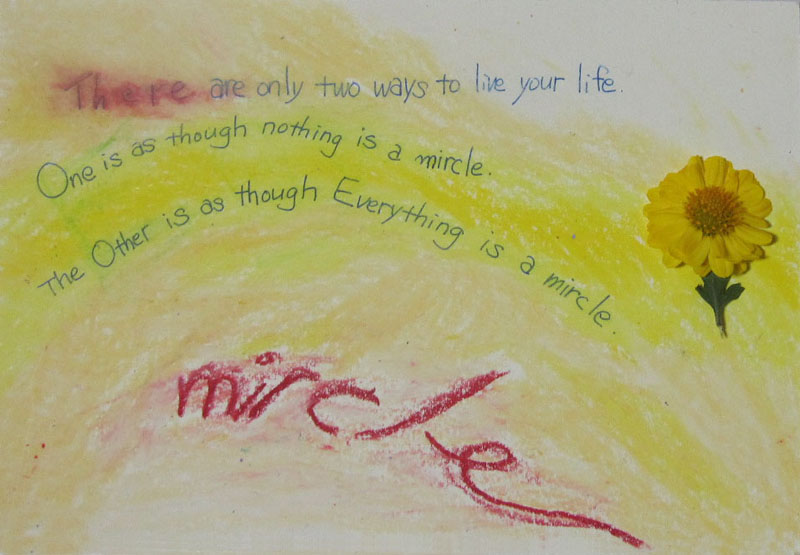 There are only two ways to live your life.
One is as though nothing is a mircle.
The Other is as though Everything is a mircle.
mircle